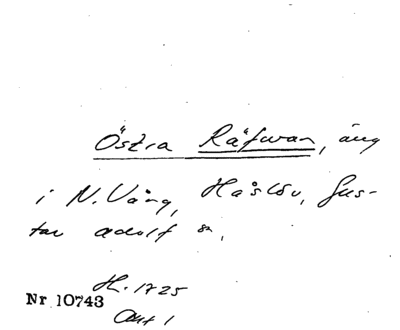 Östra Räfwan, äng
i N. Vång, Håslöv, Gus-
tav Adolf sn,
H. 1725
Nr 10743
Akt 1